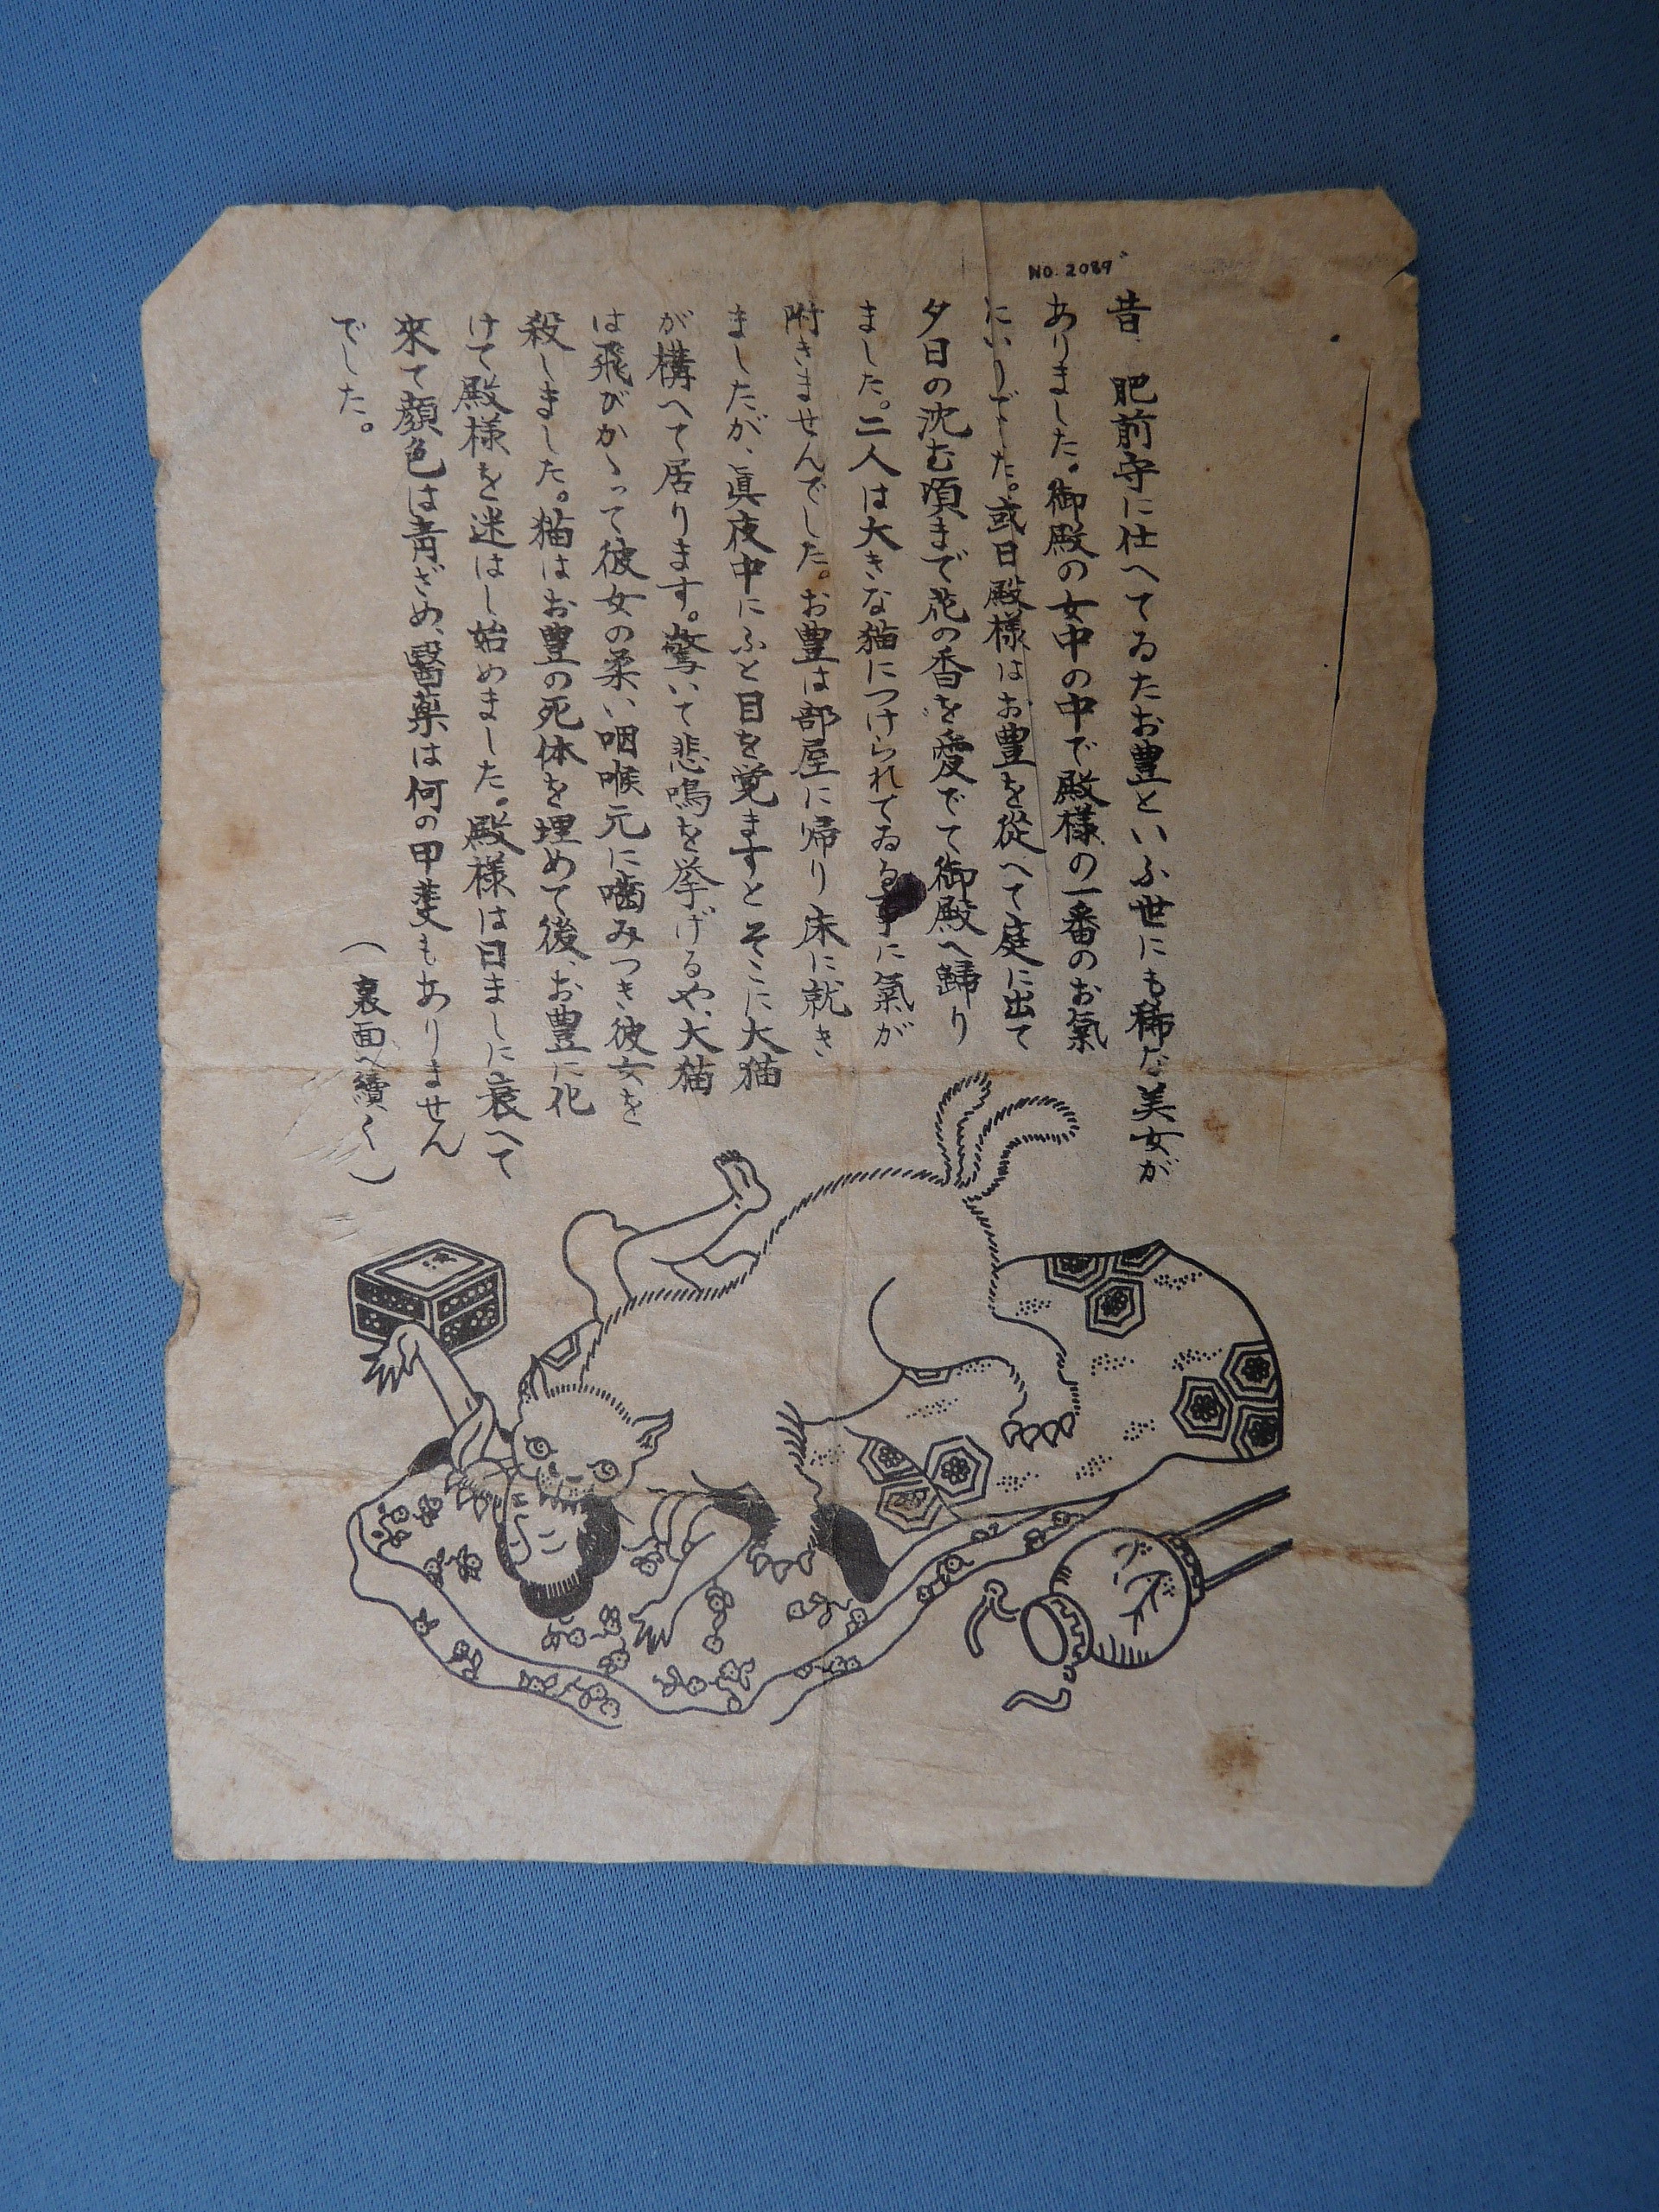 NO. 2089
昔、肥前守に仕へてゐたお豊といふ世にも稀な美女が
ありました。御殿の女中の中で殿様の一番のお氣
にいりでした。或日殿様はお豊を從へて庭に出て
夕日の沈む頃まで花の香を愛でて御殿へ歸り
ました。二人は大きな猫につけられてゐる事に氣が
附きませんでした。お豊は部屋に帰り床に就き
ましたが、眞夜中にふと目を覚ますとそこに大猫
が構へて居ります。驚いて悲鳴を挙げるや、大猫
は飛びかゝって彼女の柔い咽喉元に噛みつき彼女を
殺しました。猫はお豊の死体を埋めて後、お豊に化
けて殿様を迷はし始めました。殿様は日ましに衰へて
來て顔色は青ざめ、醫薬は何の甲斐もありません
でした。
(裏面へ續く)